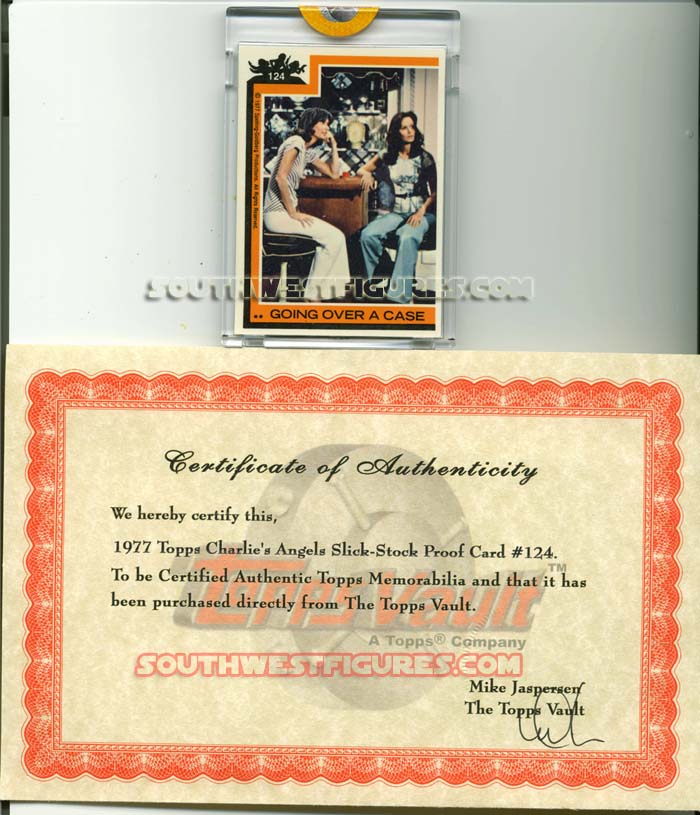 124
© 1977 Spelling-Goldberg Productions. All Rights Reserved.
SOUTHWESTFIGURES.COM
GOING OVER A CASE
Certificate of Authenticity
We hereby certify this,
1977 Topps Charlie's Angels Slick-Stock Proof Card #124.
To be Certified Authentic Topps Memorabilia and that it has
been purchased directly from The Topps Vault.
Topps Vault™
A Topps® Company
SOUTHWESTFIGURES.COM
Mike Jaspersen
The Topps Vault